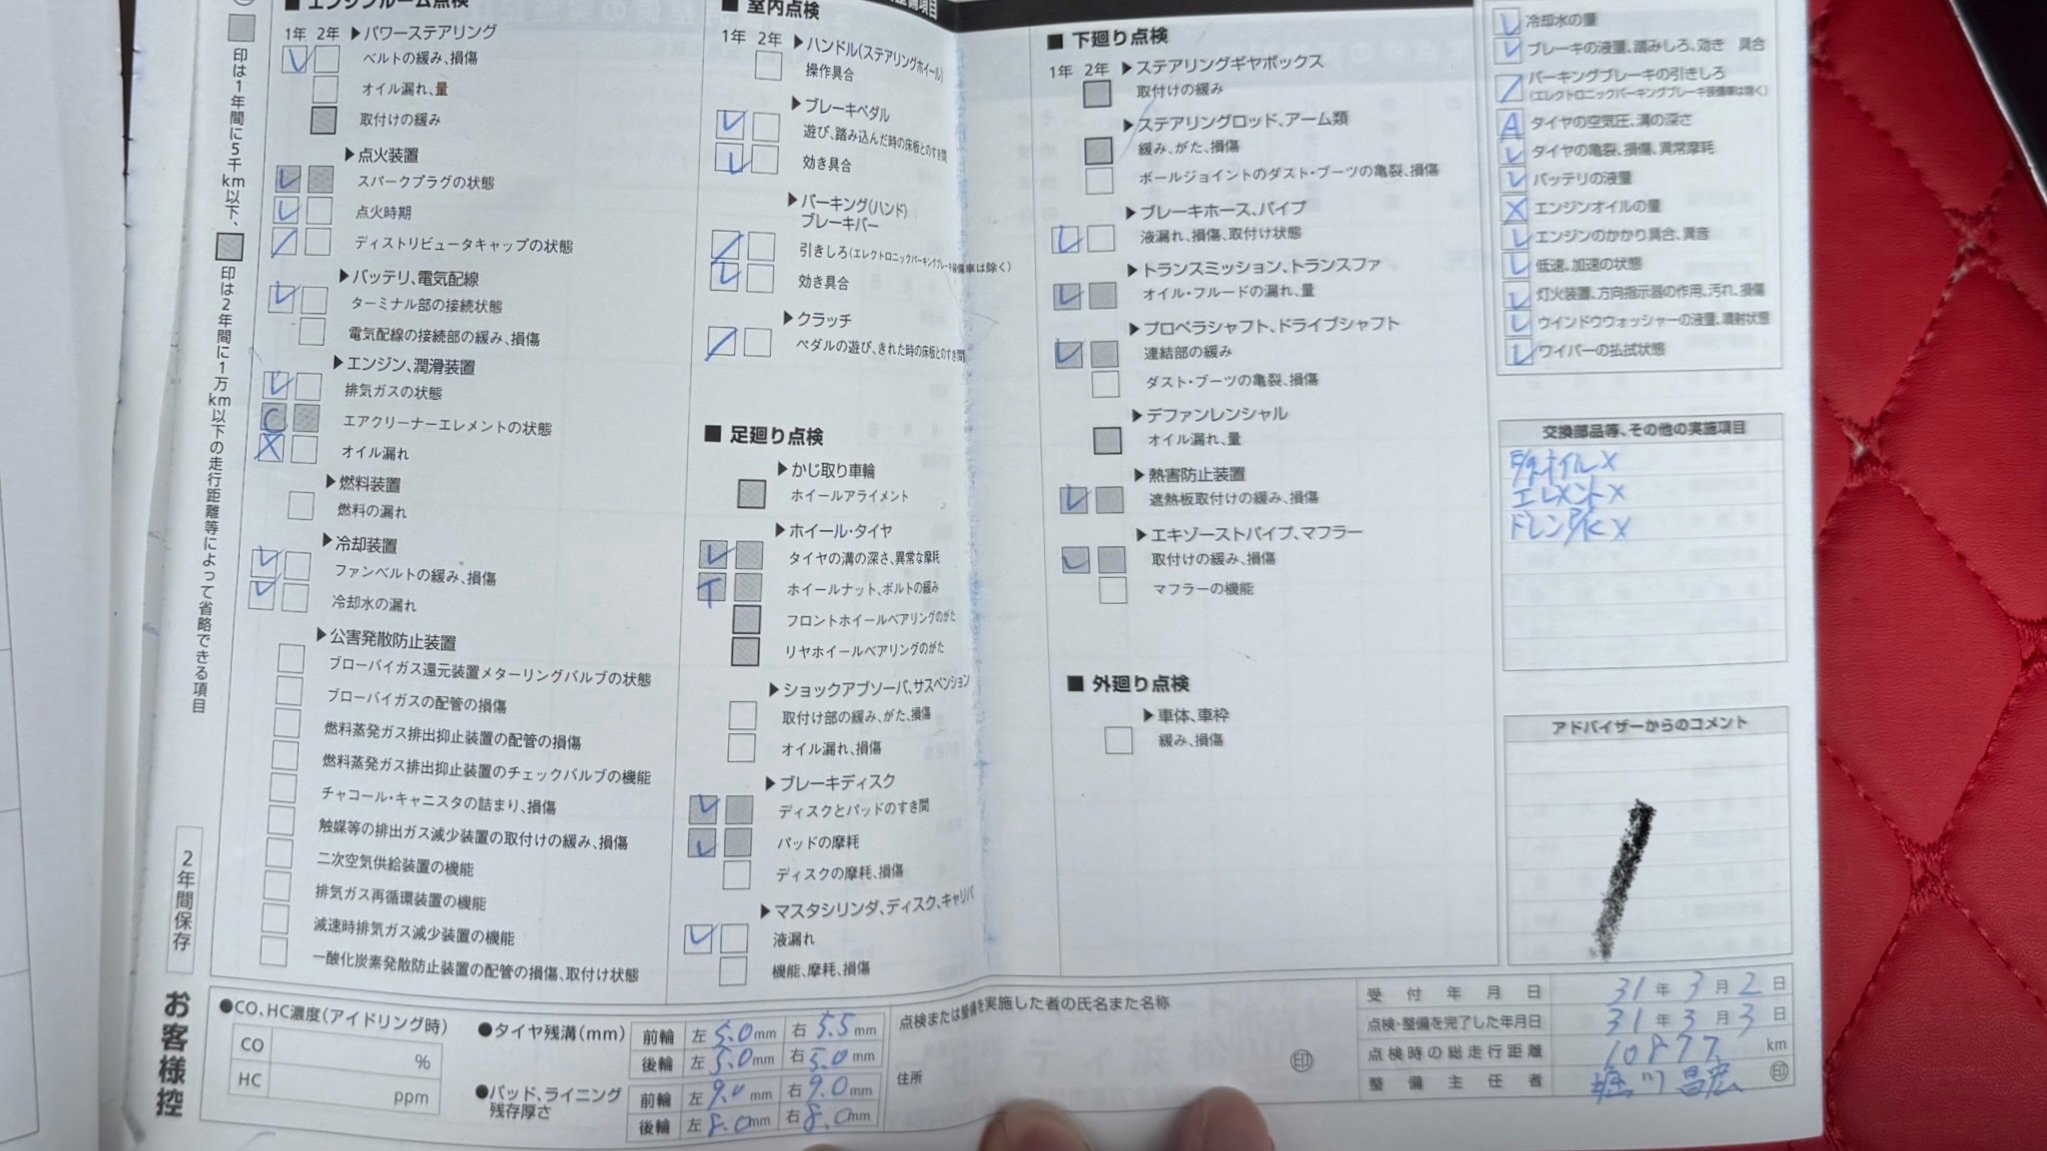 印は1年間に5千km以下、印は2年間に1万km以下の走行距離等によって省略できる項目
2年間保存
お客様控
■ エンジンルーム点検
1年 2年
▶パワーステアリング
ベルトの緩み、損傷
オイル漏れ、量
取付けの緩み
▶点火装置
スパークプラグの状態
点火時期
ディストリビュータキャップの状態
▶バッテリ、電気配線
ターミナル部の接続状態
電気配線の接続部の緩み、損傷
▶エンジン、潤滑装置
排気ガスの状態
C エアクリーナーエレメントの状態
X オイル漏れ
▶燃料装置
燃料の漏れ
▶冷却装置
ファンベルトの緩み、損傷
冷却水の漏れ
▶公害発散防止装置
ブローバイガス還元装置メターリングバルブの状態
ブローバイガスの配管の損傷
燃料蒸発ガス排出抑止装置の配管の損傷
燃料蒸発ガス排出抑止装置のチェックバルブの機能
チャコール・キャニスタの詰まり、損傷
触媒等の排出ガス減少装置の取付けの緩み、損傷
二次空気供給装置の機能
排気ガス再循環装置の機能
減速時排気ガス減少装置の機能
一酸化炭素発散防止装置の配管の損傷、取付け状態
■ 室内点検
1年 2年
▶ハンドル(ステアリングホイール)
操作具合
▶ブレーキペダル
遊び、踏み込んだ時の床板とのすき間
効き具合
▶パーキング(ハンド)
ブレーキバー
引きしろ(エレクトロニックパーキングブレーキ装備車は除く)
効き具合
▶クラッチ
ペダルの遊び、きれた時の床板とのすき間
■ 足廻り点検
▶かじ取り車輪
ホイールアライメント
▶ホイール・タイヤ
タイヤの溝の深さ、異常な摩耗
T ホイールナット、ボルトの緩み
フロントホイールベアリングのがた
リヤホイールベアリングのがた
▶ショックアブソーバ、サスペンション
取付け部の緩み、がた、損傷
オイル漏れ、損傷
▶ブレーキディスク
ディスクとパッドのすき間
パッドの摩耗
ディスクの摩耗、損傷
▶マスタシリンダ、ディスク、キャリパ
液漏れ
機能、摩耗、損傷
■ 下廻り点検
1年 2年
▶ステアリングギヤボックス
取付けの緩み
▶ステアリングロッド、アーム類
緩み、がた、損傷
ボールジョイントのダスト・ブーツの亀裂、損傷
▶ブレーキホース、パイプ
液漏れ、損傷、取付け状態
▶トランスミッション、トランスファ
オイル・フルードの漏れ、量
▶プロペラシャフト、ドライブシャフト
連結部の緩み
ダスト・ブーツの亀裂、損傷
▶デファンレンシャル
オイル漏れ、量
▶熱害防止装置
遮熱板取付けの緩み、損傷
▶エキゾーストパイプ、マフラー
取付けの緩み、損傷
マフラーの機能
■ 外廻り点検
▶車体、車枠
緩み、損傷
冷却水の量
ブレーキの液量、踏みしろ、効き 具合
パーキングブレーキの引きしろ
(エレクトロニックパーキングブレーキ装備車は除く)
A タイヤの空気圧、溝の深さ
タイヤの亀裂、損傷、異常摩耗
バッテリの液量
X エンジンオイルの量
エンジンのかかり具合、異音
低速、加速の状態
灯火装置、方向指示器の作用、汚れ、損傷
ウインドウウォッシャーの液量、噴射状態
ワイパーの払拭状態
交換部品等、その他の実施項目
オイル X
エレメント X
ドレンP/K X
アドバイザーからのコメント
●CO、HC濃度(アイドリング時)
CO %
HC ppm
●タイヤ残溝(mm)
前輪 左 5.0mm 右 5.5mm
後輪 左 5.0mm 右 5.0mm
●パッド、ライニング
残存厚さ
前輪 左 9.0mm 右 9.0mm
後輪 左 8.0mm 右 8.0mm
点検または整備を実施した者の氏名また名称
住所
印
受付年月日 31年3月2日
点検・整備を完了した年月日 31年3月3日
点検時の総走行距離 10877 km
整備主任者 堀川 昌宏 印